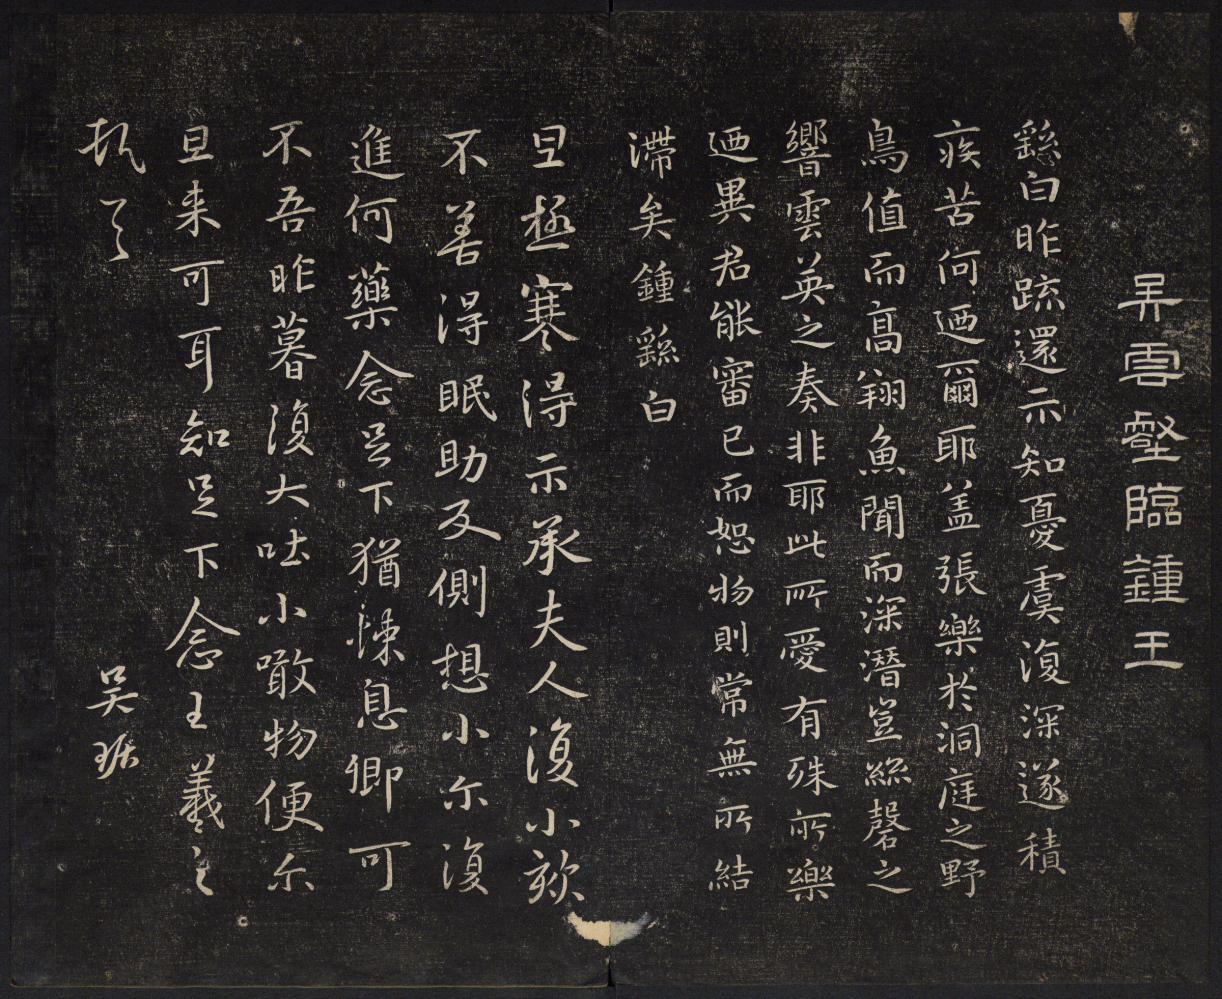 吴雲壑臨鍾王
繇白昨疏還示知憂虞復深遂積
疾苦何迺爾耶盖張樂於洞庭之野
鳥值而高翔魚聞而深潛豈絲磬之
響雲英之奏非耶此所愛有殊所樂
迺異君能審己而恕物則常無所結
滯矣鍾繇白
旦極寒得示承夫人復小欬
不善得眠助反側想小尔復
進何藥念足下猶悚息卿可
不吾昨暮復大吐小噉物便尔
旦来可耳知足下念王羲之
頓首
吴琚